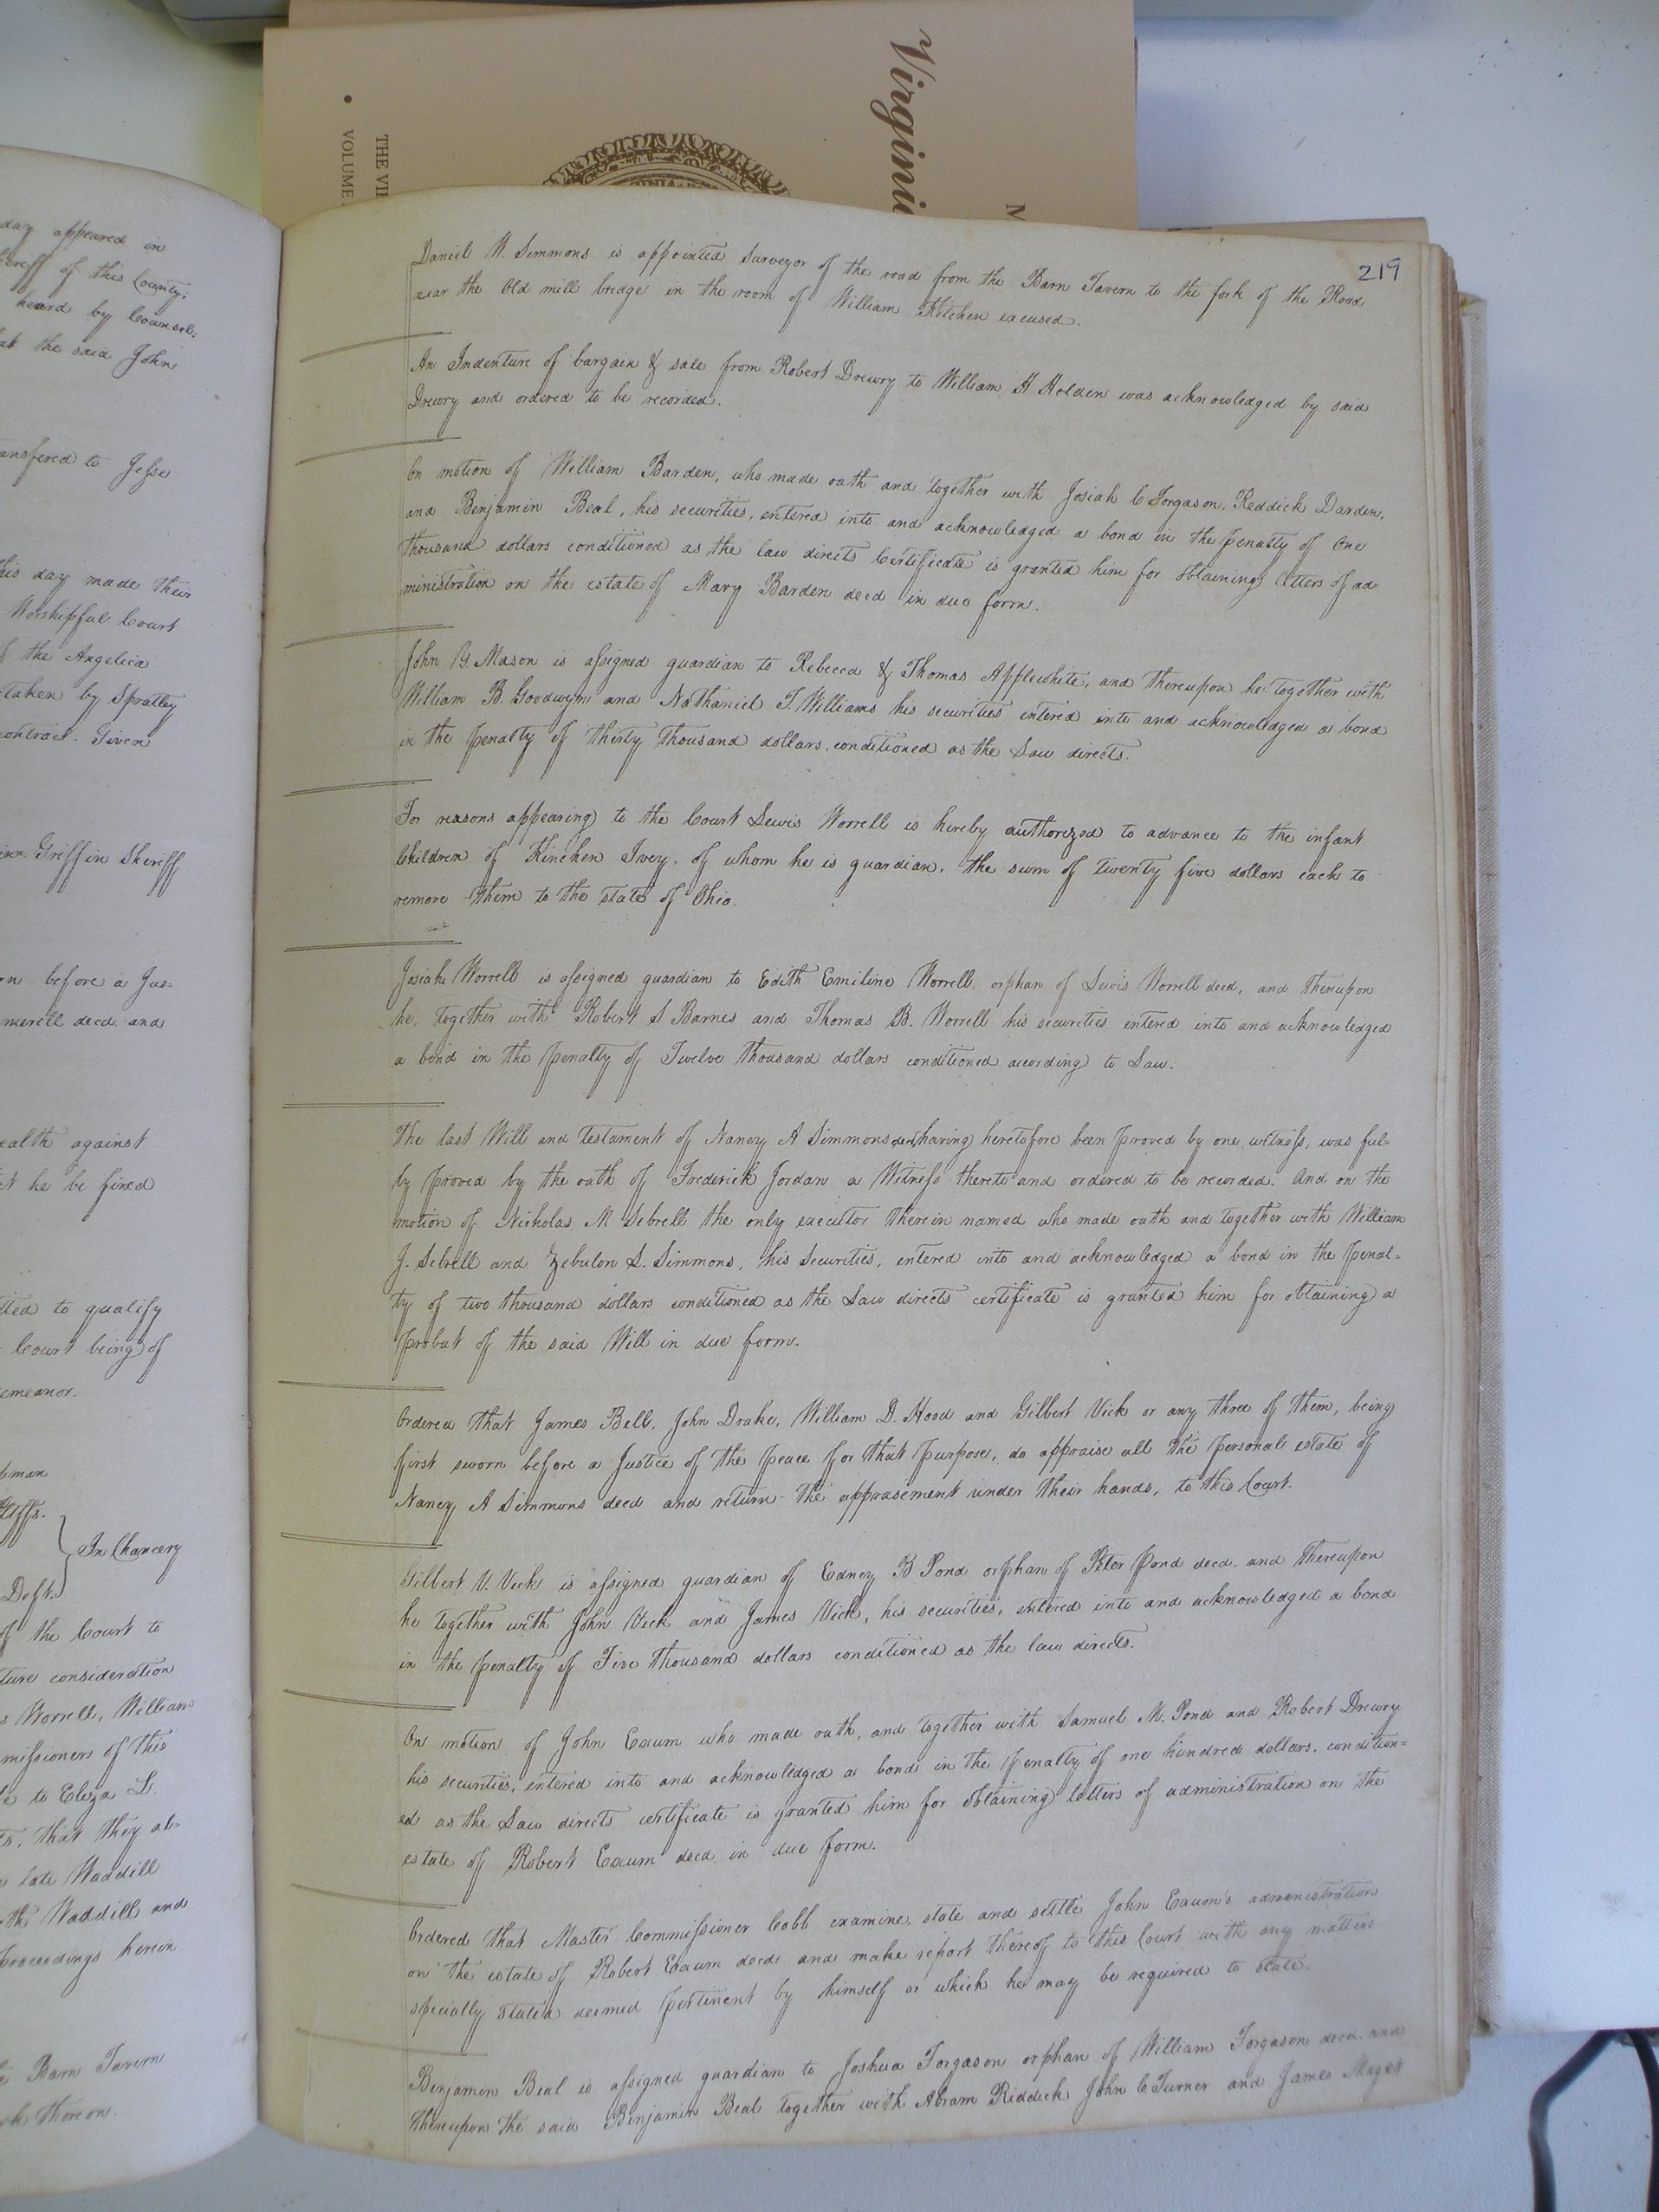 Virgini
M
THE VI
VOLUME
day appeared in
heriff of this County.
heard by Counsel.
at the said John
ansfered to Jesse
this day made their
Worshipful Court
f the Angelica
taken by Spratley
contract. Given
Griffin Sheriff
rn before a Jus=
merell decd. and
ealth against
t he be fined
tted to qualify
Court being of
emeanor.
pman
Pltffs.
In Chancery
Deft.
of the Court to
ture consideration
s Worrell, William
missioners of this
e to Eliza L.
ts, that they al-
late Waddill
th Waddill and
proceedings herein
e Barn Tavern
rk thereon.
219
Daniel W. Simmons is appointed Surveyor of the road from the Barn Tavern to the fork of the Road
near the Old mill bridge in the room of William Kitchen excused.
An Indenture of bargain & sale from Robert Drewry to William H Holden was acknowledged by said
Drewry and ordered to be recorded.
On motion of William Barden, who made oath and together with Josiah C Forgason, Reddick Darden,
and Benjamin Beal, his securities, entered into and acknowledged a bond in the penalty of One
thousand dollars conditioned as the law directs Certificate is granted him for obtaining letters of ad-
ministration on the estate of Mary Barden decd in due form.
John G. Mason is assigned guardian to Rebecca & Thomas Applewhite, and thereupon he together with
William B. Goodwyn and Nathaniel T. Williams his securities entered into and acknowledged a bond
in the penalty of thirty thousand dollars, conditioned as the Law directs.
For reasons appearing to the Court Lewis Worrell is hereby authorized to advance to the infant
Children of Kinchen Ivey, of whom he is guardian, the sum of twenty five dollars each to
remove them to the state of Ohio.
Josiah Worrell is assigned guardian to Edith Emiline Worrell, orphan of Lewis Worrell decd, and thereupon
he, together with Robert S Barnes and Thomas B. Worrell his securities entered into and acknowledged
a bond in the penalty of Twelve thousand dollars conditioned according to Law.
The last Will and testament of Nancy A Simmons decd having heretofore been proved by one witness, was ful-
ly proved by the oath of Frederick Jordan a Witness thereto and ordered to be recorded. And on the
motion of Nicholas M Sebrell the only executor therein named who made oath and together with William
J. Sebrell and Zebulon S. Simmons, his Securities, entered into and acknowledged a bond in the penal=
ty of two thousand dollars conditioned as the Law directs certificate is granted him for obtaining a
probat of the said Will in due form.
Ordered that James Bell, John Drake, William D. Hood and Gilbert Vick or any three of them, being
first sworn before a Justice of the peace for that purpose, do appraise all the personal estate of
Nancy A Simmons decd and return the apprasement under their hands, to this Court.
Gilbert V. Vick is assigned guardian of Edney B Pond orphan of Peter Pond decd. and thereupon
he together with John Vick and James Vick, his securities, entered into and acknowledged a bond
in the penalty of Five thousand dollars conditioned as the law directs.
On motion of John Exum who made oath, and together with Samuel M. Pond and Robert Drewry
his securities, entered into and acknowledged a bond in the penalty of one hundred dollars, condition=
ed as the Law directs certificate is granted him for obtaining letters of administration on the
estate of Robert Exum decd. in due form.
Ordered that Master Commissioner Cobb examine, state and settle John Exum's administration
on the estate of Robert Exum decd and make report thereof to this Court with any matters
specially stated deemed pertinent by himself or which he may be required to state.
Benjamin Beal is assigned guardian to Joshua Forgason orphan of William Forgason decd. and
thereupon the said Benjamin Beal together with Abram Riddick John C Turner and James Maget